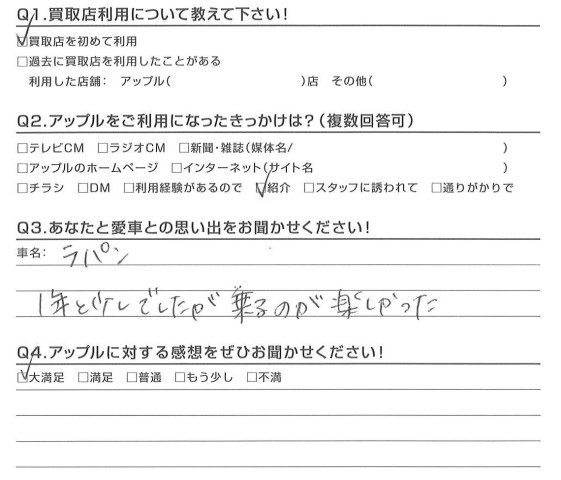 Q1.買取店利用について教えて下さい!
☑買取店を初めて利用
□過去に買取店を利用したことがある
利用した店舗: アップル( )店 その他( )
Q2.アップルをご利用になったきっかけは?(複数回答可)
□テレビCM □ラジオCM □新聞・雑誌(媒体名/ )
□アップルのホームページ □インターネット(サイト名 )
□チラシ □DM □利用経験があるので ☑紹介 □スタッフに誘われて □通りがかりで
Q3.あなたと愛車との思い出をお聞かせください!
車名: ラパン
1年と少しでしたが乗るのが楽しかった
Q4.アップルに対する感想をぜひお聞かせください!
☑大満足 □満足 □普通 □もう少し □不満